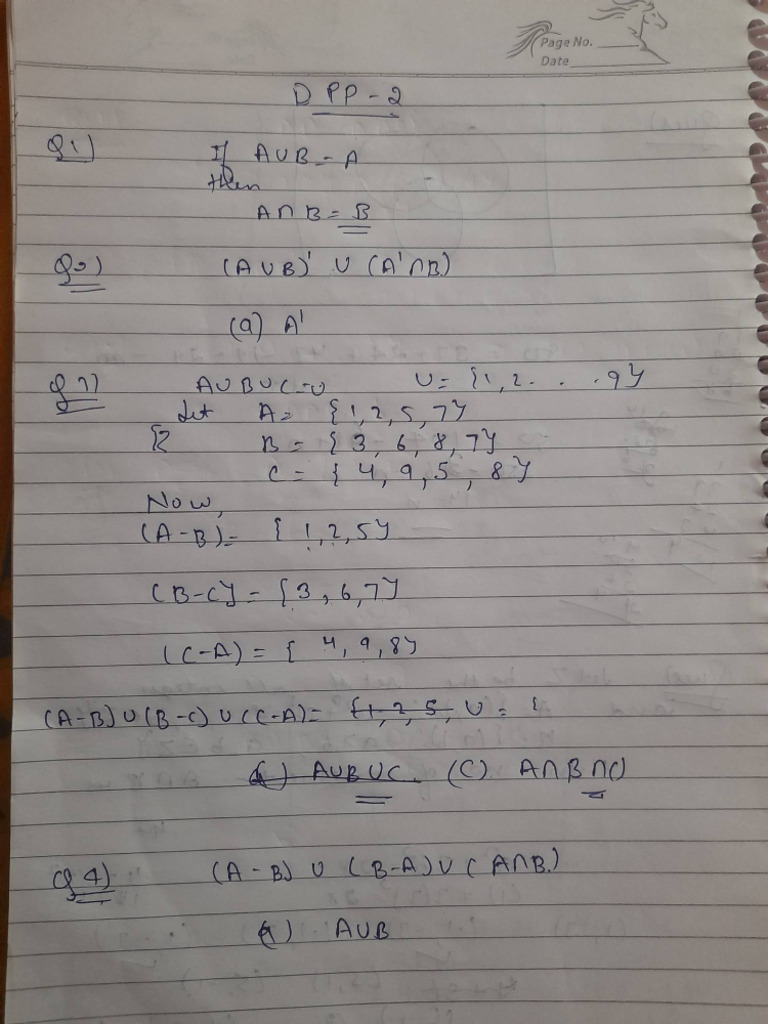 Page No.
Date
DPP-2
Q1) If A∪B = A
then
A∩B = B
Q2) (A∪B)' ∪ (A'∩B)
(a) A'
A∪B∪C=U U = {1,2 . . . . 9}
Let A = {1,2,5,7}
B = {3, 6, 8, 7}
C = { 4, 9, 5, 8}
Now,
(A-B)= { 1,2,5}
(B-C} = {3, 6,7}
(C-A) = { 4, 9, 8}
(A-B)∪(B-C)∪(C-A)= {1, 2, 5, U = {
A∪B∪C. (C) A∩B∩C)
Q4) (A-B) ∪ (B-A)∪(A∩B)
A∪B